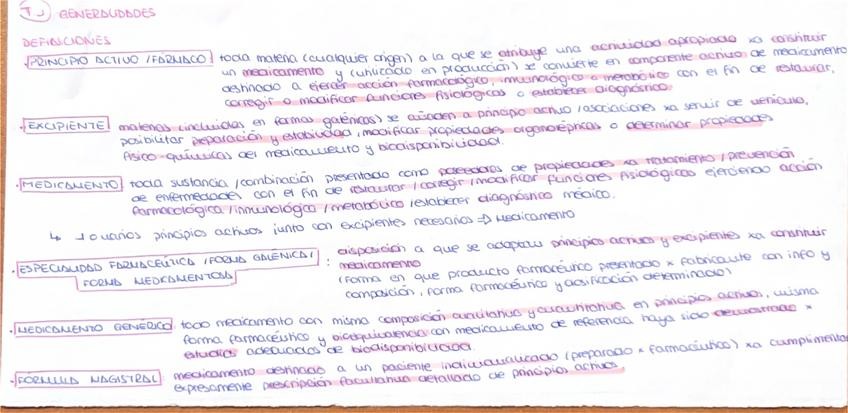 I.) GENERALIDADES
DEFINICIONES
· PRINCIPIO ACTIVO / FÁRMACO toda materia (cualquier origen) a la que se atribuye una actividad apropiada xa constituir
un medicamento y (utilizado en producción) se convierte en componente activo de medicamento
destinado a ejercer acción farmacológica, inmunológica o metabólica con el fin de restaurar,
corregir o modificar funciones fisiológicas o establecer diagnóstico.
· EXCIPIENTE materias (incluidas en formas galénicas) se añaden a principio activo / asociaciones xa servir de vehículo,
posibilitar preparación y estabilidad, modificar propiedades organolépticas o determinar propiedades
físico-químicas del medicamento y biodisponibilidad.
· MEDICAMENTO toda sustancia / combinación presentado como poseedoras de propiedades xa tratamiento / prevención
de enfermedades con el fin de restaurar / corregir / modificar funciones fisiológicas ejerciendo acción
farmacológica / inmunológica / metabólica / establecer diagnóstico médico.
↳ 1 o varios principios activos junto con excipientes necesarios => Medicamento
· ESPECIALIDAD FARMACEÚTICA / FORMA GALÉNICA /
FORMA MEDICAMENTOSA : disposición a que se adaptan principios activos y excipientes xa constituir
medicamento
(Forma en que producto farmacéutico presentado x fabricante con info y
composición, forma farmacéutico y dosificación determinado)
· MEDICAMENTO GENÉRICO todo medicamento con misma composición cualitativa y cuantitativa en principios activos, misma
forma farmacéutico y bioequivalencia con medicamento de referencia haya sido demostrado x
estudios adecuados de biodisponibilidad
· FÓRMULA MAGISTRAL medicamento destinado a un paciente individualizado (preparado x farmacéutico) xa cumplimentar
expresamente prescripción facultativa detallado de principios activos.